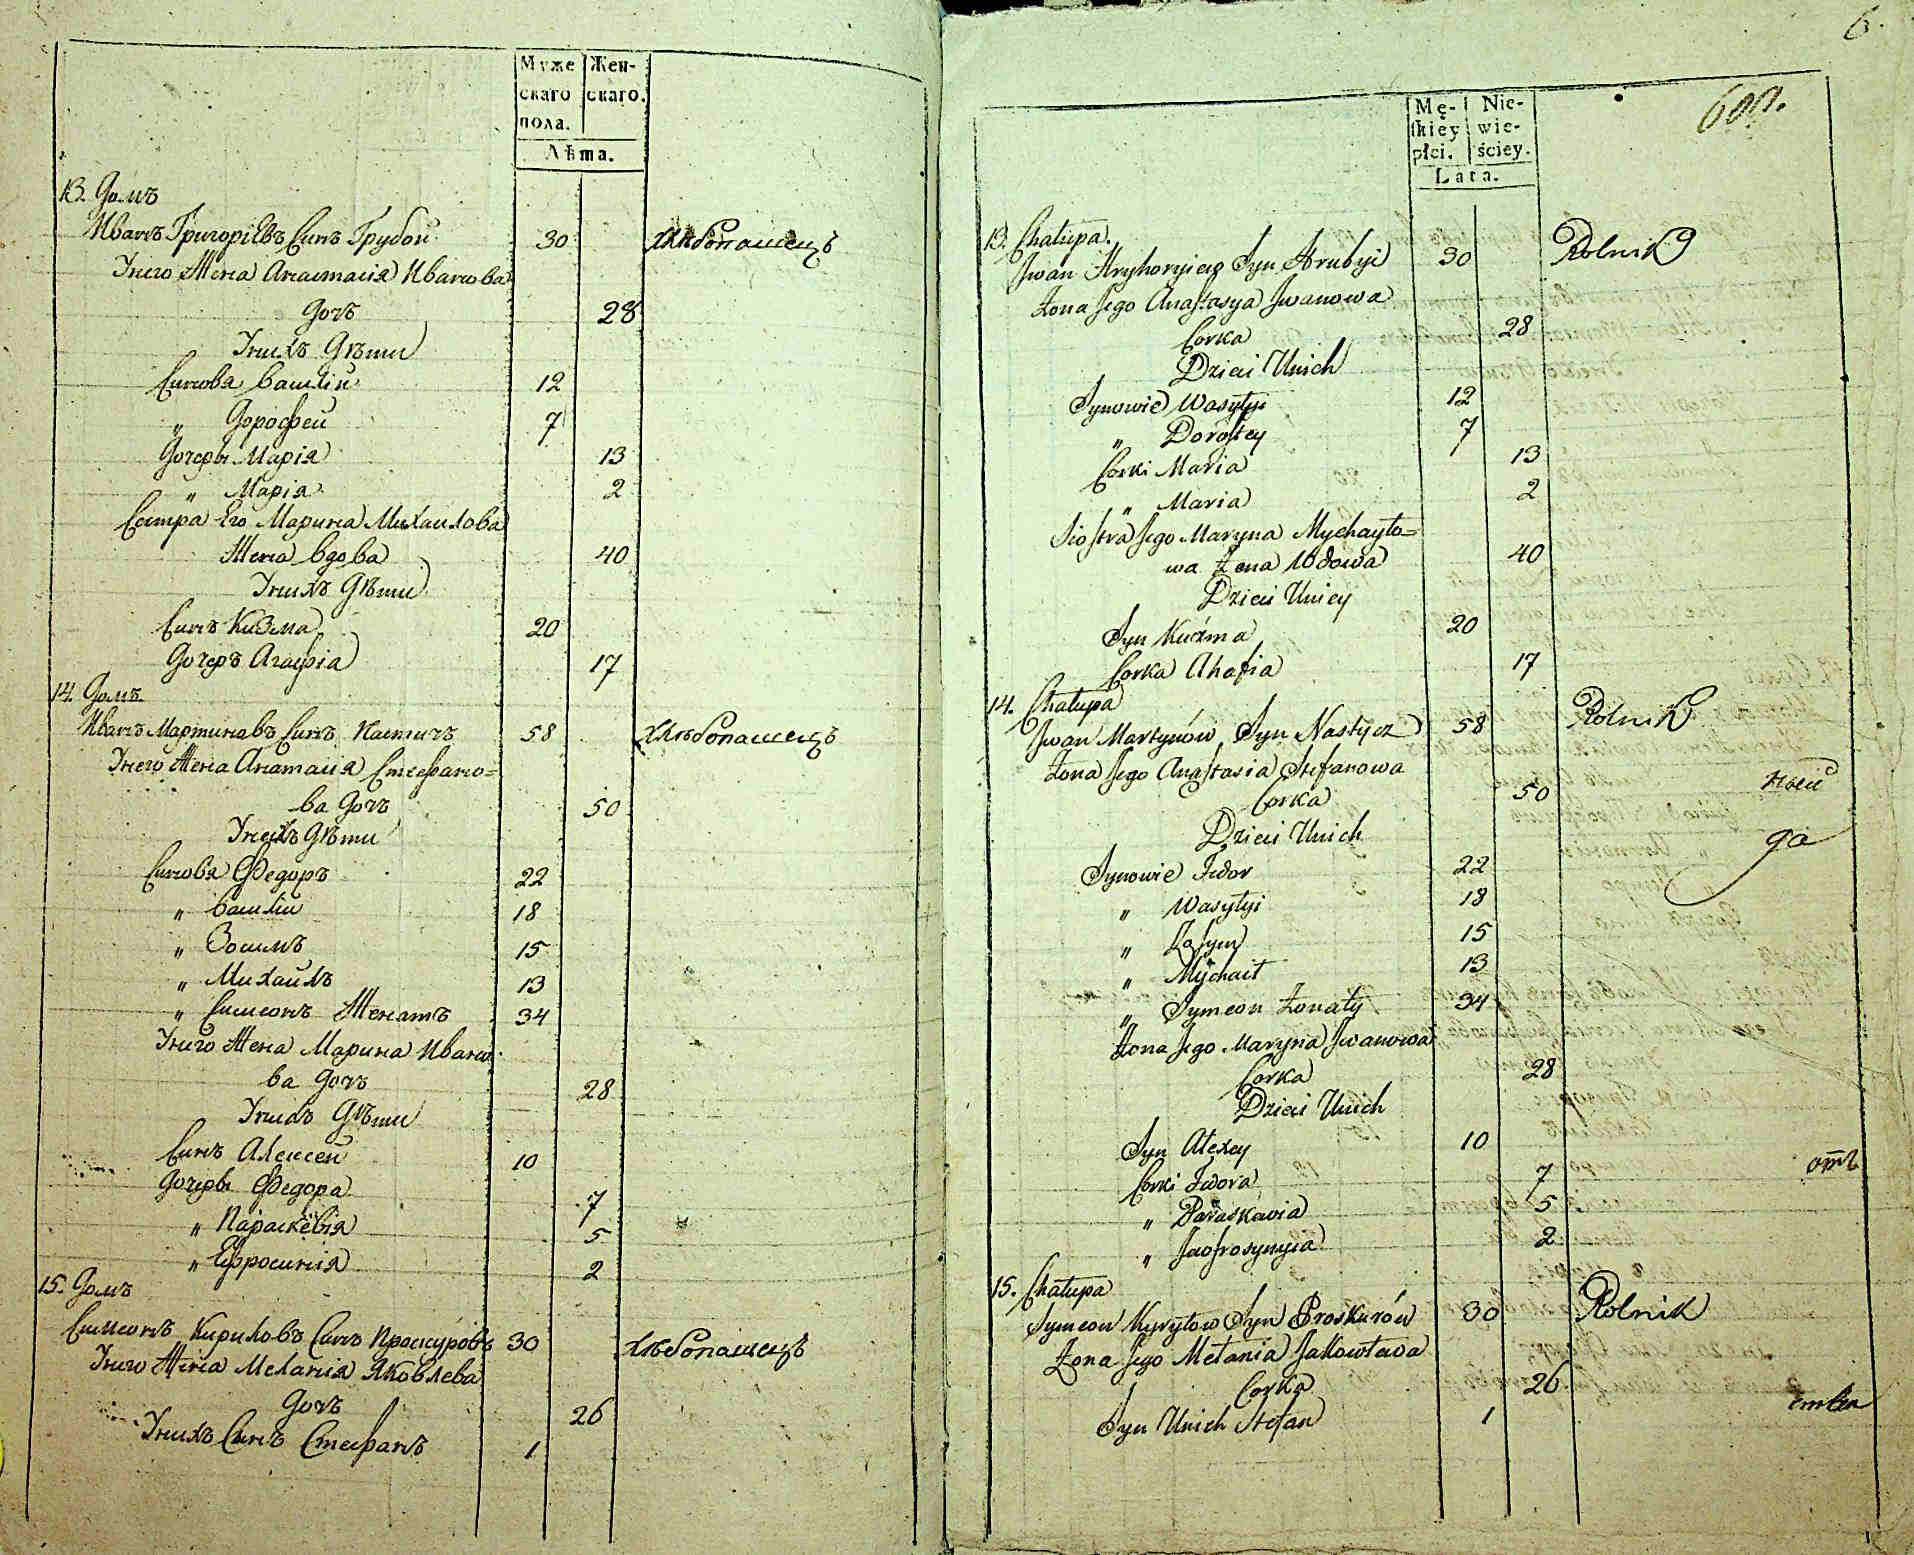 Муже
скаго
пола.
Жен-
скаго.
Лѣта.
13. Домъ
Иванъ Григоріевъ Синъ Грубой 30 хлѣбопашецъ
Унего Жена Анастасія Иванова
Дочь 28
Унихъ Дѣти
Синовя Василій 12
„ Дорофей 7
Дочеры Марія 13
„ Марія 2
Сестра Его Марина Михаилова
Жена вдова 40
Унихъ Дѣти
Синъ Кузма 20
Дочеръ Агафія 17
14. Домъ
Иванъ Мартиновъ Синъ Настичъ 58 хлѣбопашецъ
Унего Жена Анатасія Стефано=
ва Дочъ 50
Унихъ Дѣти
Синовя Федоръ 22
„ Василій 18
„ Зосимъ 15
„ Михайлъ 13
„ Симеонъ Женатъ 34
Унего Жена Марина Ивано
ва Дочъ 28
Унихъ Дѣти
Синъ Алексей 10
Дочеры Федора 7
„ Параскевія 5
„ Ефросинія 2
15. Домъ
Симеонъ Кириловъ Синъ Проскуровъ 30 хлѣбопашецъ
Унего Жена Меланія Яковлева
Дочъ 26
Унихъ Синъ Стефанъ 1
6.
Mę-
skiey
płci.
Nie-
wie-
ściey.
Lata.
13. Chałupa.
Jwan Hryhoryiew Syn Hrubyi 30 Rolnik
Żona Jego Anastasya Jwanowa
Corka 28
Dzieci Unich
Synowie Wasylyi 12
„ Dorofiey 7
Corki Maria 13
„ Maria 2
Siostra Jego Maryna Mychayło=
wa Żona Wdowa 40
Dzieci Uniey
Syn Kuźma 20
Corka Ahafia 17
14. Chałupa
Jwan Martynów Syn Nastycz 58 Rolnik
Żona Jego Anastasia Stefanowa
Corka 50
Dzieci Unich
Synowie Fedor 22
„ Wasylyi 18
„ Zosym 15
„ Mychaił 13
„ Symeon Żonaty 34
Żona Jego Maryna Jwanowa
Corka 28
Dzieci Unich
Syn Alexey 10
Corki Fedora 7
„ Paraskawia 5
„ Jaofrosynyia 2
15. Chałupa
Symeon Kyryłow Syn Proskurów 30 Rolnik
Żona Jego Mełania Jakowlewa
Corka 26
Syn Unich Stefan 1